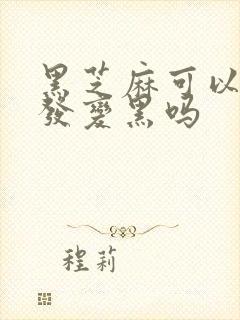 黑芝麻可以
發變黑吗
程莉